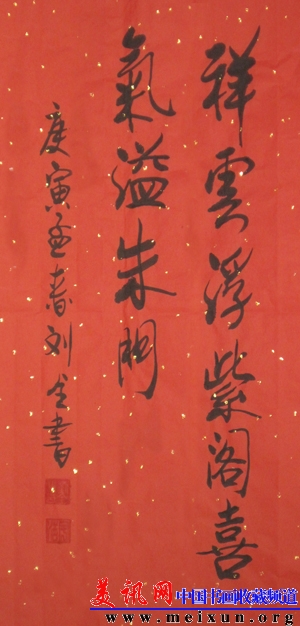 祥雲浮紫阁喜
氣溢朱門
庚寅孟春刘全書
美讯网 中国书画收藏频道
www.meixun.org